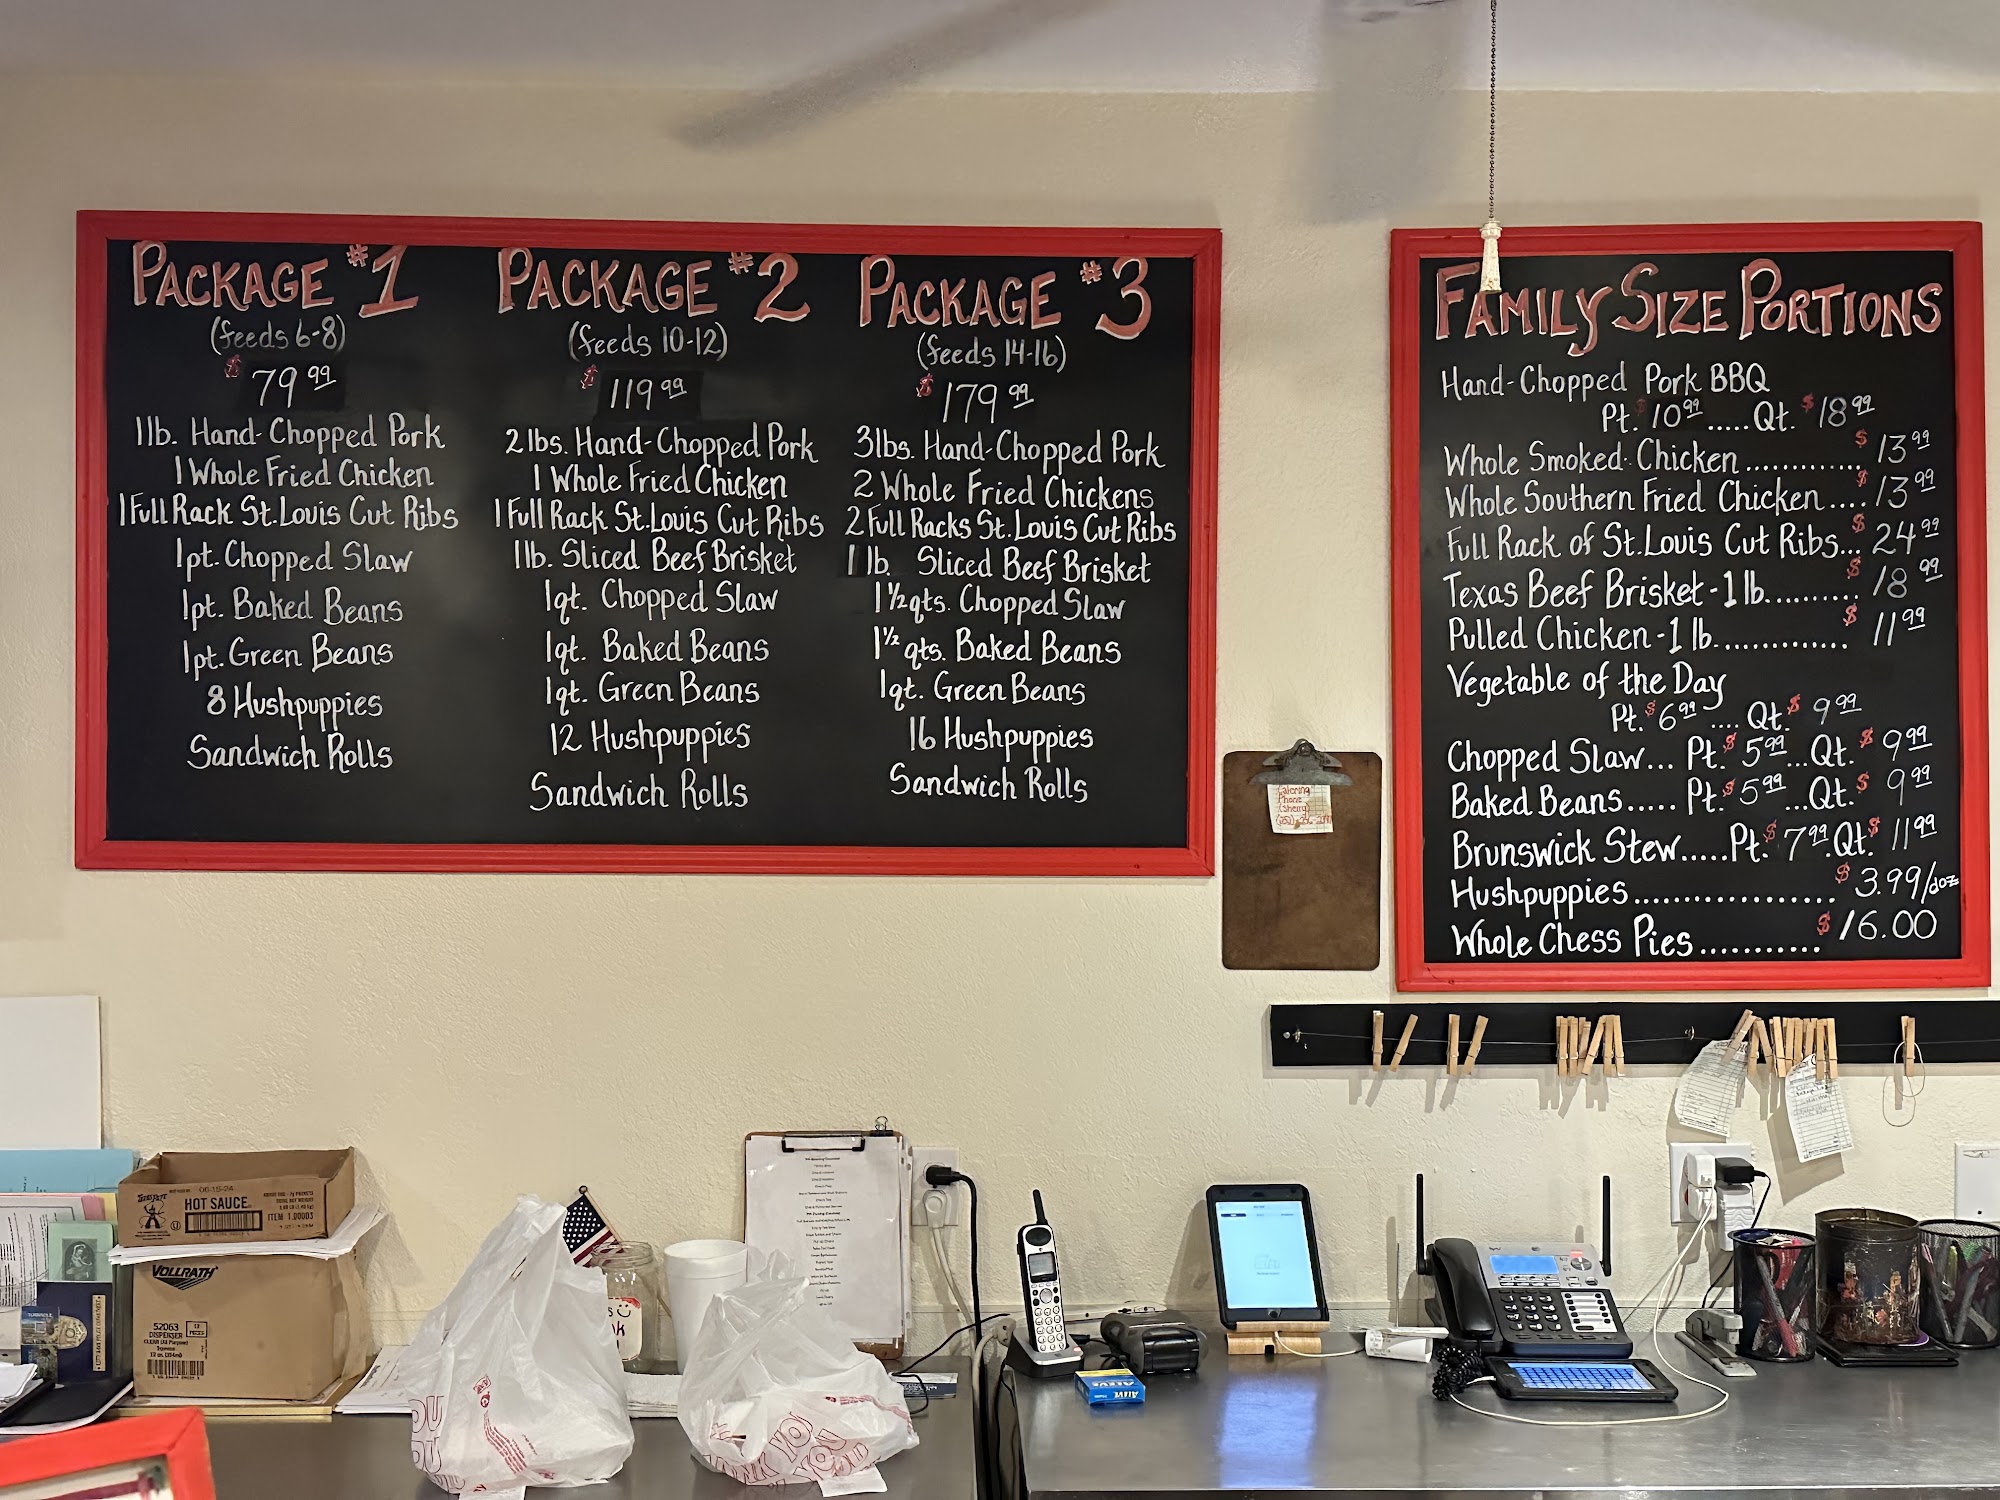 PACKAGE #1
(feeds 6-8)
$79.99
1lb. Hand-Chopped Pork
1 Whole Fried Chicken
1 Full Rack St. Louis Cut Ribs
1pt. Chopped Slaw
1pt. Baked Beans
1pt. Green Beans
8 Hushpuppies
Sandwich Rolls
PACKAGE #2
(feeds 10-12)
$119.99
2lbs. Hand-Chopped Pork
1 Whole Fried Chicken
1 Full Rack St. Louis Cut Ribs
1lb. Sliced Beef Brisket
1qt. Chopped Slaw
1qt. Baked Beans
1qt. Green Beans
12 Hushpuppies
Sandwich Rolls
PACKAGE #3
(feeds 14-16)
$179.99
3lbs. Hand-Chopped Pork
2 Whole Fried Chickens
2 Full Racks St. Louis Cut Ribs
1 lb. Sliced Beef Brisket
1 1/2 qts. Chopped Slaw
1 1/2 qts. Baked Beans
1qt. Green Beans
16 Hushpuppies
Sandwich Rolls
FAMILY SIZE PORTIONS
Hand-Chopped Pork BBQ
Pt. $10.99.....Qt. $18.99
Whole Smoked Chicken............. $13.99
Whole Southern Fried Chicken.... $13.99
Full Rack of St. Louis Cut Ribs... $24.99
Texas Beef Brisket-1 lb.......... $18.99
Pulled Chicken-1 lb.............. $11.99
Vegetable of the Day
Pt. $6.99.... Qt. $9.99
Chopped Slaw... Pt. $5.99...Qt. $9.99
Baked Beans..... Pt. $5.99...Qt. $9.99
Brunswick Stew.....Pt. $7.99.Qt. $11.99
Hushpuppies................... $3.99/doz
Whole Chess Pies........... $16.00
Catering
Phone
(Sherry)
06-15-24
HOT SAUCE
ITEM 1.00003
VOLLRATH
52063
DISPENSER
THANK YOU
ALEVE